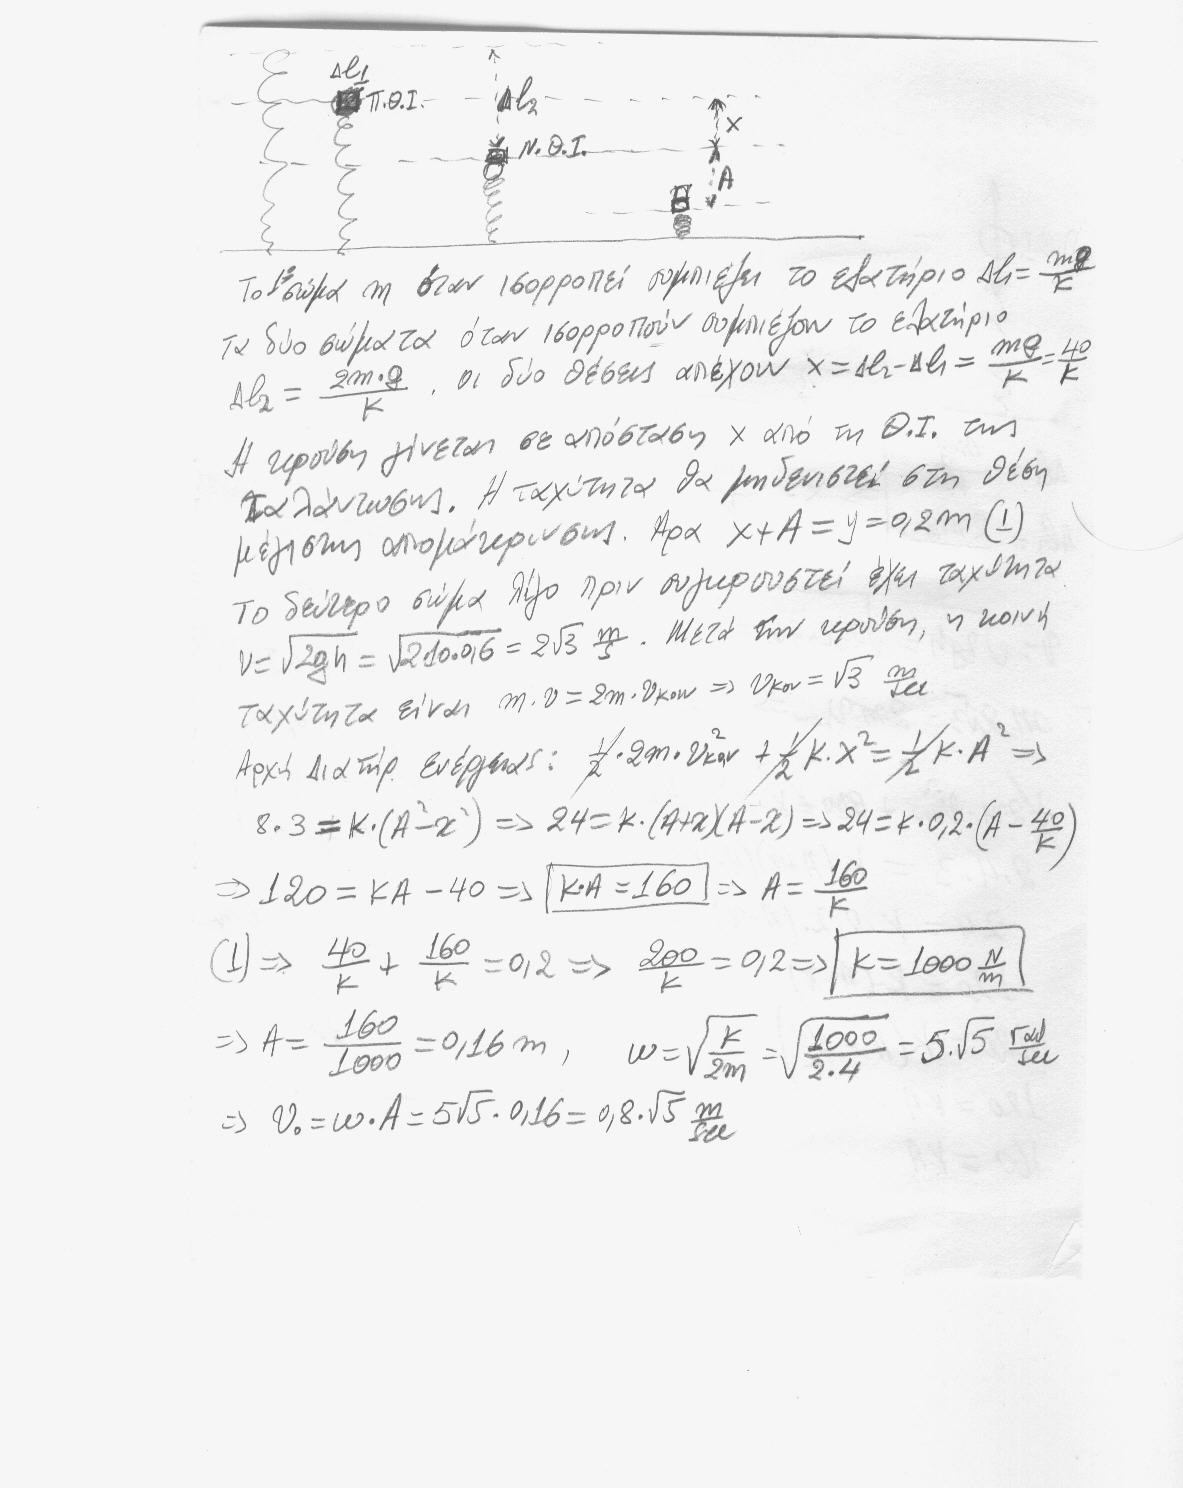 Δl1
Π.Θ.Ι.
Δl2
Ν.Θ.Ι.
x
A
Το 1º σώμα m όταν ισορροπεί συμπιέζει το ελατήριο Δl1 = mg/K
Τα δύο σώματα όταν ισορροπούν συμπιέζουν το ελατήριο
Δl2 = 2m·g/K . οι δύο θέσεις απέχουν x = Δl2 - Δl1 = mg/K = 40/K
Η κρούση γίνεται σε απόσταση x από τη Θ.Ι. της
ταλάντωσης. Η ταχύτητα θα μηδενιστεί στη θέση
μέγιστης απομάκρυνσης. Άρα x + A = y = 0,2m (1)
Το δεύτερο σώμα λίγο πριν συγκρουστεί έχει ταχύτητα
v = √2gh = √2·10·0,6 = 2√3 m/s . Μετά την κρούση, η κοινή
ταχύτητα είναι m·υ = 2m·υκοιν => υκοιν = √3 m/sec
Αρχή Διατήρ. Ενέργειας: 1/2·2m·υκοιν² + 1/2 K·x² = 1/2 K·A² =>
8·3 = K·(A² - x²) => 24 = K·(A+x)(A-x) => 24 = K·0,2·(A - 40/K)
=> 120 = KA - 40 => K·A = 160 => A = 160/K
(1) => 40/K + 160/K = 0,2 => 200/K = 0,2 => K = 1000 N/m
=> A = 160/1000 = 0,16 m , ω = √K/2m = √1000/2·4 = 5·√5 rad/sec
=> V₀ = ω·A = 5√5·0,16 = 0,8·√5 m/sec